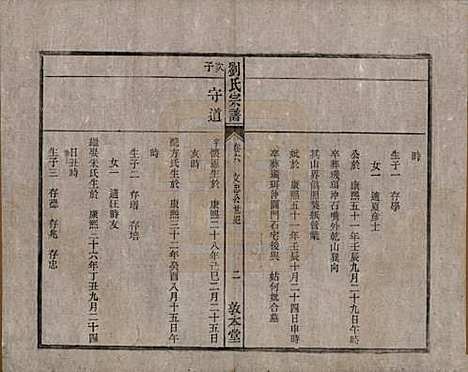 時
生子一 存學
女一 適夏彦士
公於 康熙五十一年壬辰二月二十九日午時
卒葬璜珥冲石嘴外乾山巽向
其山界俱照契紙管業
妣於 康熙五十一年壬辰十月二十四日申時
卒葬璜珥冲圍門石宅後與 姑何氏合墓
劉氏宗譜
卷六 文忠公世紀
二
敦本堂
次子
守道
字懷遠生於 康熙二十八年己巳二月二十五日
亥時
龍方氏生於 康熙二十二年癸亥八月十五日午
時
生子二 存瑞 存培
女一 適汪時友
繼張朱氏生於 康熙二十六年丁丑九月二十四
日丑時
生子三 存德 存兆 存忠